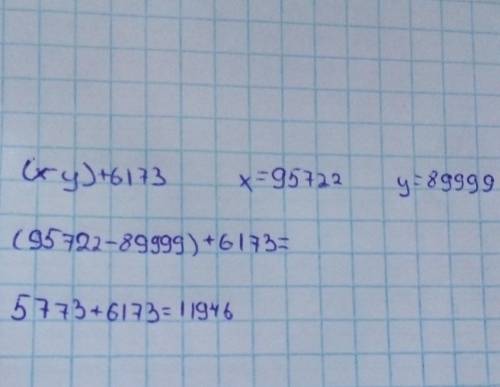 (x-y)+6173 x=95722 y=89999
(95722-89999)+6173=
5773+6173=11946